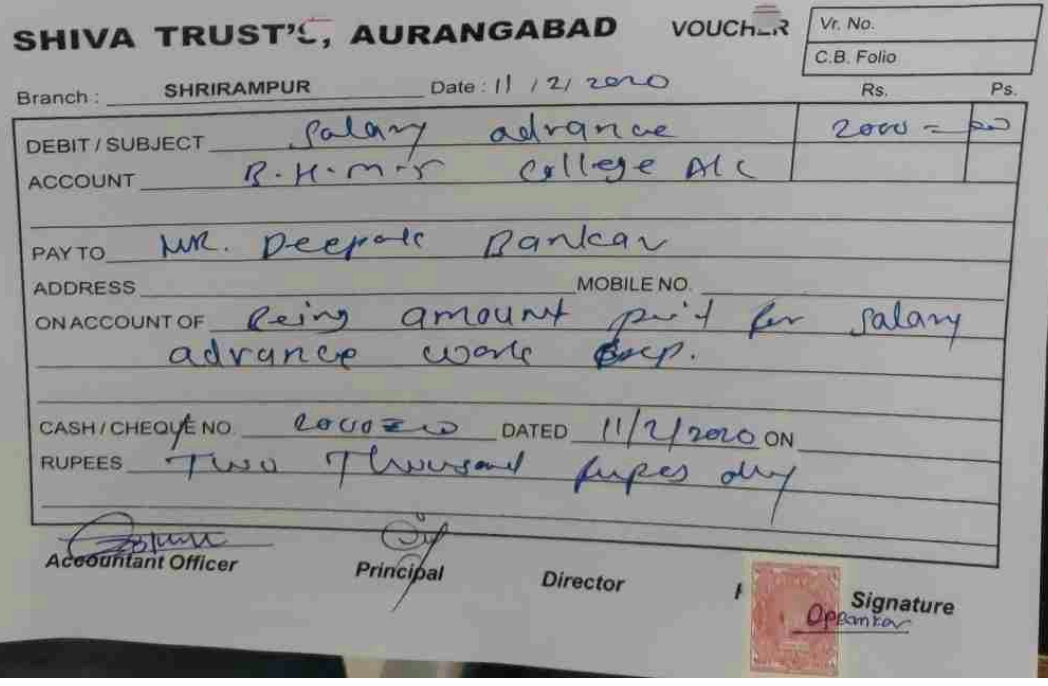 SHIVA TRUST'S, AURANGABAD VOUCHER Vr. No.
C.B. Folio
Branch : SHRIRAMPUR Date : 11 / 2 / 2020 Rs. Ps.
DEBIT / SUBJECT Salary advance 2000 = 00
ACCOUNT B.H.M.S College A/c
PAY TO MR. Deepak Bankar
ADDRESS MOBILE NO.
ON ACCOUNT OF Being amount paid for salary
advance work exp.
CASH / CHEQUE NO. 2000=00 DATED 11/2/2020 ON
RUPEES Two Thousand rupes only
Accountant Officer Principal Director Signature
DPBankar